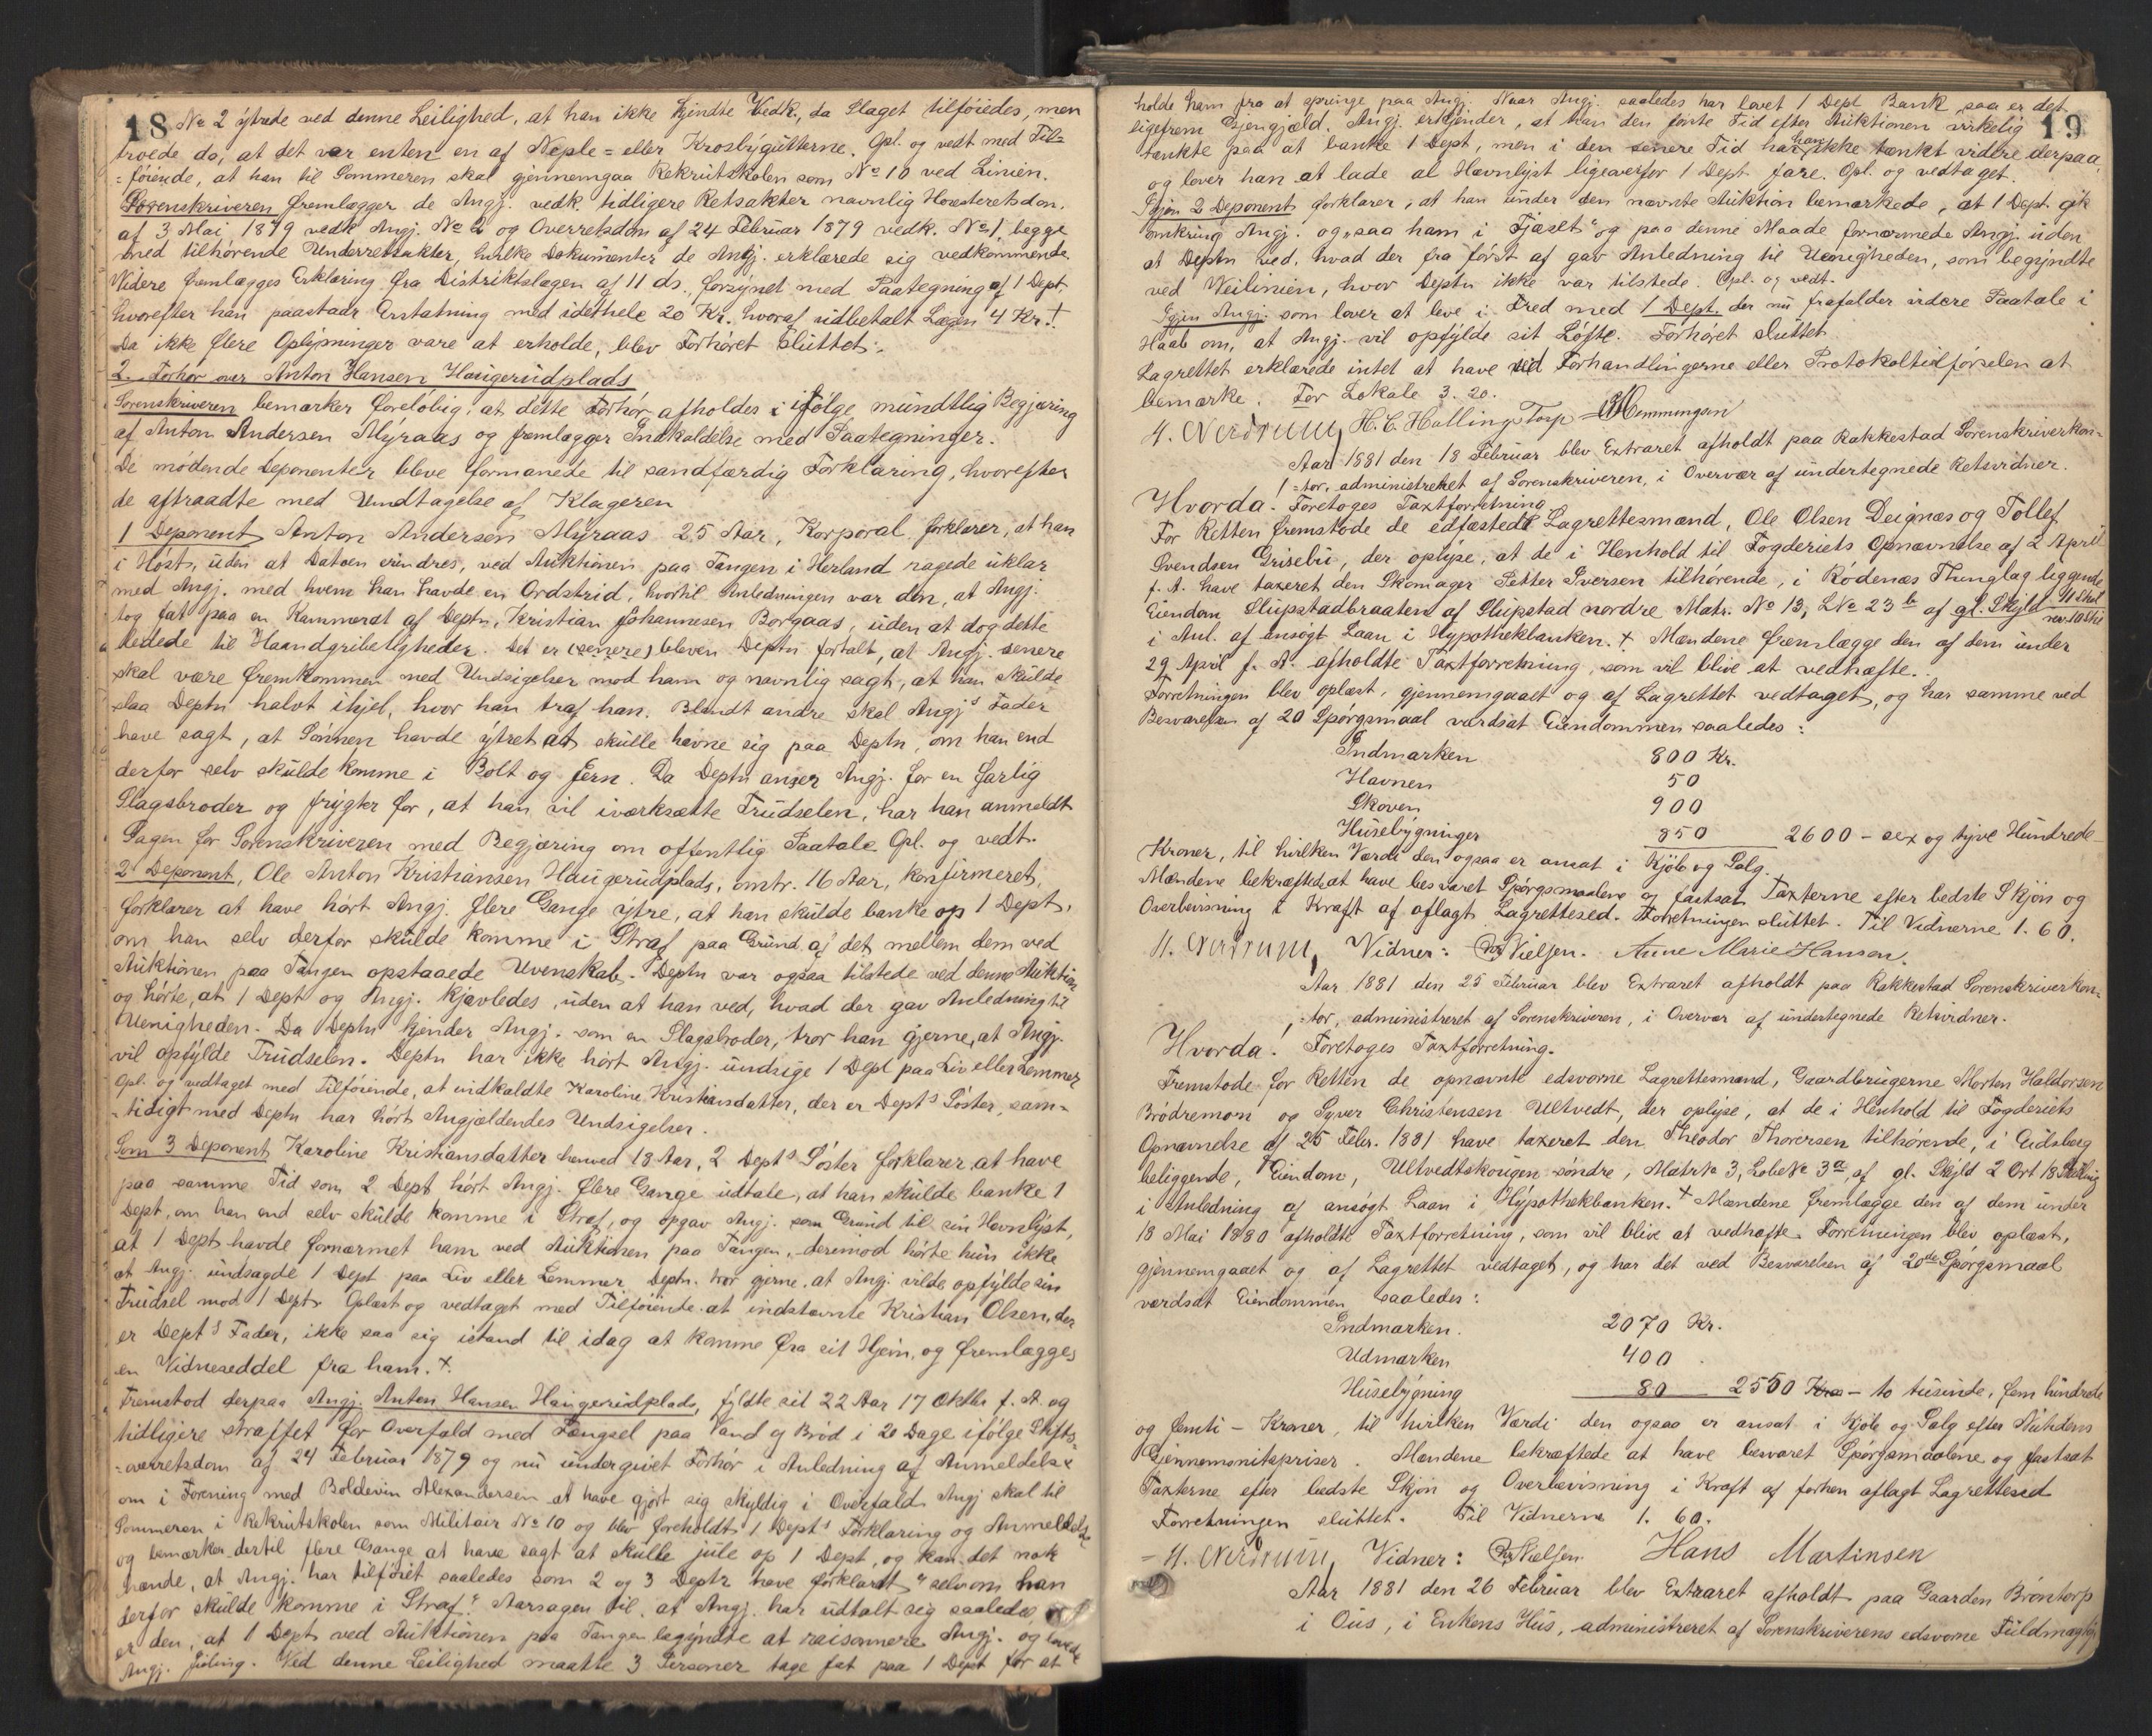 18 No 2 ytrede ved denne Leilighed, at han ikke kjendte Vedk., da Slaget tilføiedes, men
troede da, at det var enten en af Neple= eller Krosbygutterne. Opl. og vedt med Til=
=føiende, at han til Sommeren skal gjennemgaa Rekrutskolen som No 10 ved Linien.
Sorenskriveren fremlægger de Angj. vedk. tidligere Retsakter navnlig Høiesteretsdom
af 3 Mai 1879 vedk Angj. No 2 og Overretsdom af 24 Februar 1879 vedk. No 1, begge
med tilhørende Underretsakter, hvilke Dokumenter de Angj. erklærede sig vedkommende.
Videre fremlægges Erklæring fra Distriktslægen af 11 ds., forsynet med Paategning af 1 Dept
hvorefter han paastaar Erstatning med idethele 20 Kr. hvoraf udbetalt Lægen 4 Kr. +
Da ikke flere Oplysninger vare at erholde, blev Forhøret Sluttet.
2. Forhør over Anton Hansen Haugerudplads
Sorenskriveren bemærker foreløbig, at dette Forhør afholdes i ifølge mundtlig Begjæring
af Anton Andersen Myraas og fremlægger Indkaldelse med Paategninger.
De mødende Deponenter bleve formanede til sandfærdig Forklaring, hvorefter
de aftraadte med Undtagelse af Klageren
1 Deponent Anton Andersen Myraas 25 Aar, Korporal forklarer, at han
i Høst, uden at Datoen erindres, ved Auktionen paa Tangen i Herland ragede uklar
med Angj. med hvem han havde en Ordstrid, hvortil Anledningen var den, at Angj.
tog fat paa en Kammerat af Deptn, Kristian Johannesen Borgaas, uden at dog dette
ledede til Haandgribeligheder. Det er (senere) bleven Deptn fortalt, at Angj. senere
skal være fremkommen med Undsigelser mod ham og navnlig sagt, at han skulde
slaa Deptn halvt ihjel, hvor han traf han. Blandt andre skal Angjs Fader
have sagt, at Sønnen havde ytret at skulle hevne sig paa Deptn, om han end
derfor selv skulde komme i Bolt og Jern. Da Deptn anser Angj. for en farlig
Slagsbroder og frygter for, at han vil iverksætte Trudselen, har han anmeldt
Sagen for Sorenskriveren med Begjæring om offentlig Paatale Opl. og vedt.
2 Deponent, Ole Anton Kristiansen Haugerudplads, omtr. 16 Aar, konfirmeret,
forklarer at have hørt Angj. flere Gange ytre, at han skulde banke op 1 Dept,
om han selv derfor skulde komme i Straf paa Grund af det mellem dem ved
Auktionen paa Tangen opstaaede Uvenskab. Deptn var ogsaa tilstede ved denne Auktion
og hørte, at 1 Dept og Angj. kjævledes, uden at han ved, hvad der gav Anledning til
Uenigheden. Da Deptn kjender Angj. som en Slagsbroder, tror han gjerne, at Angj.
vil opfylde Trudselen. Deptn har ikke hørt Angj. undsige 1 Dept paa Liv eller Lemmer
Opl. og vedtaget med Tilføiende, at indkaldte Karoline Kristiansdatter, der er Depts Søster, sam=
=tidigt med Deptn har hørt Angjældendes Undsigelser.
Som 3 Deponent Karoline Kristiansdatter henved 18 Aar, 2 Depts Søster forklarer at have
paa samme Tid som 2 Dept hørt Angj. flere Gange udtale, at han skulde banke 1
Dept, om han end selv skulde komme i Straf, og opgav Angj. som Grund til sin Hevnlyst,
at 1 Dept havde fornærmet ham ved Auktionen paa Tangen, derimod hørte hun ikke
at Angj. undsagde 1 Dept paa Liv eller Lemmer. Deptn. tror gjerne, at Angj. vilde opfylde sin
Trudsel mod 1 Dept. Oplæst og vedtaget med Tilføiende at indstævnte Kristian Olsen, der
er Depts Fader, ikke saa sig istand til idag at komme fra sit Hjem, og fremlægges
en Vidneseddel fra ham. +
Fremstod derpaa Angj. Anton Hansen Haugerudplads, fyldte sit 22 Aar 17 Oktbr f. A. og
tidligere straffet for Overfald med Fængsel paa Vand og Brød i 20 Dage ifølge Stifts=
=overretsdom af 24 Februar 1879 og nu undergivet Forhør i Anledning af Anmeldelse
om i Forening med Boldevin Alexandersen at have gjort sig skyldig i Overfald. Angj skal til
Sommeren i Rekrutskolen som Militair No 10 og blev foreholdt 1 Depts Forklaring og Anmeldelse
og bemærker dertil flere Gange at have sagt at skulle jule op 1 Dept, og kan det nok
hænde, at Angj. har tilføiet saaledes som 2 og 3 Deptr have forklart "selv om han
derfor skulde komme i Straf". Aarsagen til, at Angj. har udtalt sig saaledes
er den, at 1 Dept ved Auktionen paa Tangen begyndte at raisonnere Angj. og lovede
Angj. Juling. Ved denne Leilighed maatte 3 Personer tage fat paa 1 Dept for at
19
holde ham fra at springe paa Angj. Naar Angj. saaledes har lovet 1 Dept Bank, saa er det
ligefrem Gjengjæld. Angj. erkjender, at han den første Tid efter Auktionen virkelig
tænkte paa at banke 1 Dept, men i den senere Tid har han ikke tænkt videre derpaa,
og lover han at lade al Hævnlyst ligeoverfor 1 Dept fare. Opl. og vedtaget.
Igjen 2 Deponent forklarer, at han under den nævnte Auktion bemærkede, at 1 Dept gik
omkring Angj. og "saa ham i Fjæset" og paa denne Maade fornærmede Angj. uden
at Deptn ved, hvad der fra først af gav Anledning til Uenigheden, som begyndte
ved Veilinien, hvor Deptn ikke var tilstede. Opl. og vedt.
Igjen Angj. som lover at leve i Fred med 1 Dept. der nu frafalder videre Paatale i
Haab om, at Angj. vil opfylde sit Løfte. Forhøret Sluttet.
Lagrettet erklærede intet at have ved Forhandlingerne eller Protokoltilførselen at
bemærke. For Lokale 3. 20.
H. Nerdrum, H. C. Halling Torp Hemmingsen
Aar 1881 den 18 Februar blev Extraret afholdt paa Rakkestad Sorenskriverkon=
=tor, administreret af Sorenskriveren, i Overvær af undertegnede Retsvidner.
Hvorda! Foretoges Taxtforretning.
For Retten fremstode de edfæstede Lagrettesmænd, Ole Olsen Deignæs og Tollef
Svendsen Grisebu, der oplyse, at de i Henhold til Fogderiets Opnævnelse af 2 April
f. A. have taxeret den Skomager Petter Iversen tilhørende, i Rødenæs Thinglag liggende
Eiendom Slupstadbraaten af Slupstad nordre Matr. No 13, LNo 23b af gl. Skyld 11 Skil
i Anl. af ansøgt Laan i Hypothekbanken. + Mændene fremlægge den af dem under
29 April f. A. afholdte Taxtforretning, som vil blive at vedhæfte.
Forretningen blev oplæst, gjennemgaaet og af Lagrettet vedtaget, og har samme ved
Besvarelsen af 20 Spørgsmaal værdsat Eiendommen saaledes:
Indmarken 800 Kr.
Havnen 50
Skoven 900
Husebygninger 850 2600 - sex og tyve Hundrede
Kroner, til hvilken Værdi den ogsaa er ansat i Kjøb og Salg.
Mændene bekræftede at have besvaret Spørgsmaalene og fastsat Taxterne efter bedste Skjøn og
Overbevisning i Kraft af aflagt Lagrettesed. Forretningen sluttet. Til Vidnerne 1. 60.
H. Nerdrum, Vidner: Nielsen. Anne Marie Hansen.
Aar 1881 den 25 Februar blev Extraret afholdt paa Rakkestad Sorenskriverkon=
=tor, administreret af Sorenskriveren, i Overvær af undertegnede Retsvidner.
Hvorda! Foretoges Taxtforretning.
Fremstode for Retten de opnævnte edsvorne Lagrettesmænd, Gaardbrugerne Morten Haldorsen
Brødremoen og Syver Christensen Ultvedt, der oplyse, at de i Henhold til Fogderiets
Opnævnelse af 25 Febr. 1881 have taxeret den Theodor Thorersen tilhørende, i Eidsberg
beliggende, Eiendom, Ultvedtskougen søndre, Matr No 3, Løbe No 3a, af gl. Skyld 2 Ort 18 Skilling
i Anledning af ansøgt Laan i Hypothekbanken. + Mændene fremlægge den af dem under
18 Mai 1880 afholdte Taxtforretning, som vil blive at vedhæfte. Forretningen blev oplæst,
gjennemgaaet og af Lagrettet vedtaget, og har det ved Besvarelsen af 20de Spørgsmaal
værdsat Eiendommen saaledes:
Indmarken. 2070 Kr.
Udmarken 400
Husebygning 80 2550 Kro - to tusinde, fem hundrede
og femti - Kroner, til hvilken Værdi den ogsaa er ansat i Kjøb og Salg efter Nutidens
Gjennemsnitspriser. Mændene bekræftede at have besvaret Spørgsmaalene og fastsat
Taxterne efter bedste Skjøn og Overbevisning i Kraft af forhen aflagt Lagrettesed
Forretningen sluttet. Til Vidnerne 1. 60.
H. Nerdrum, Vidner: Nielsen. Hans Martinsen
Aar 1881 den 26 Februar blev Extraret afholdt paa Gaarden Brøntorp
i Øus, i Enkens Hus, administreret af Sorenskriverens edsvorne Fuldmægtig